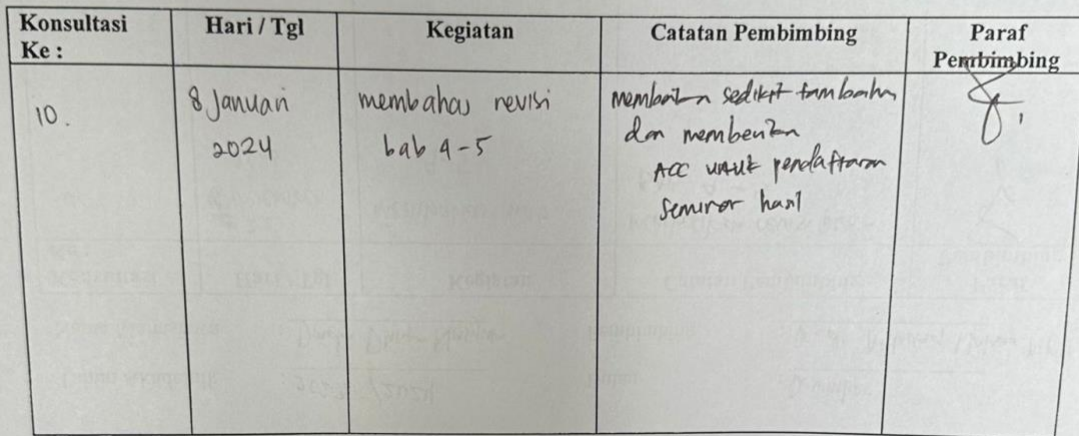 Konsultasi Ke :
Hari / Tgl
Kegiatan
Catatan Pembimbing
Paraf Pembimbing
10.
8 Januari
2024
membahas revisi
bab 4-5
sedikit
dan
ACC untuk pendaftaran
Seminar hasil